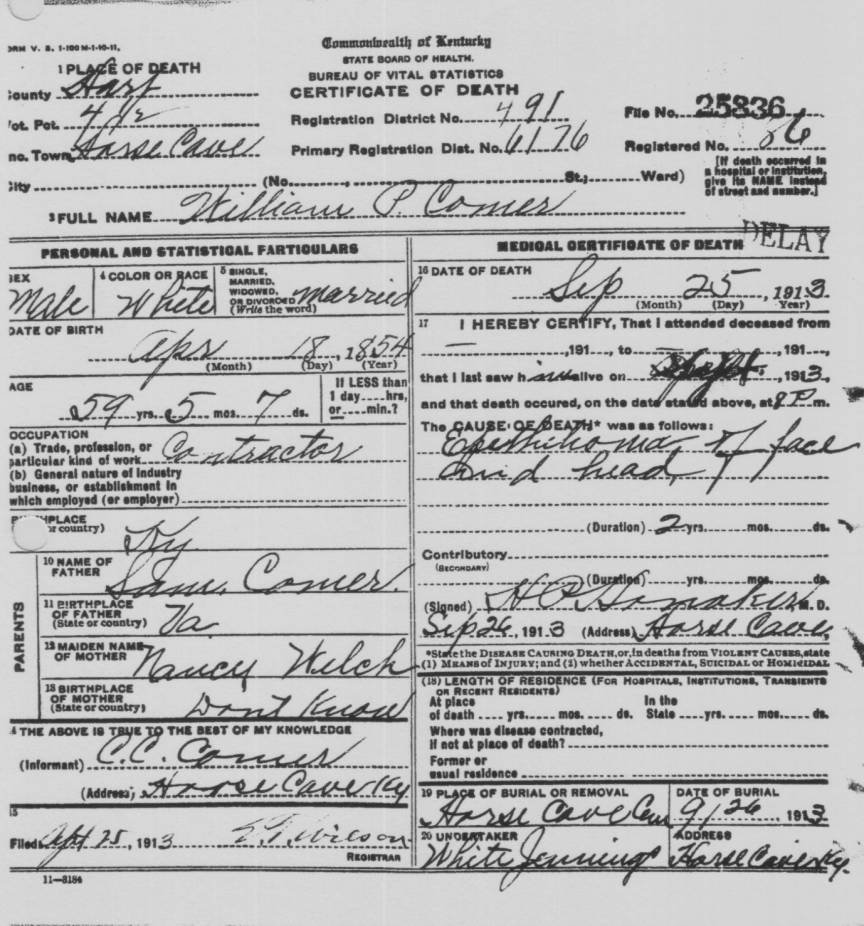 ORM V. S. 1-100 M-1-10-11.
Commonwealth of Kentucky
STATE BOARD OF HEALTH.
BUREAU OF VITAL STATISTICS
CERTIFICATE OF DEATH
1 PLACE OF DEATH
County Hart
Vot. Pct. 4
Inc. Town Horse Cave
City
Registration District No. 491
Primary Registration Dist. No. 6176
File No. 25836
Registered No. 86
(No. , St.; Ward)
[If death occurred in
a hospital or institution,
give its NAME instead
of street and number.]
3 FULL NAME William P. Comer
PERSONAL AND STATISTICAL PARTICULARS
SEX
Male
4 COLOR OR RACE
White
5 SINGLE,
MARRIED,
WIDOWED,
OR DIVORCED
(Write the word)
married
DATE OF BIRTH
Apr 18, 1854
(Month) (Day) (Year)
AGE
59 yrs. 5 mos. 7 ds.
If LESS than
1 day....hrs,
or....min.?
OCCUPATION
(a) Trade, profession, or
particular kind of work Contractor
(b) General nature of industry
business, or establishment in
which employed (or employer)
BIRTHPLACE
or country)
Ky
PARENTS
10 NAME OF
FATHER
Sam. Comer.
11 BIRTHPLACE
OF FATHER
(State or country)
Va
12 MAIDEN NAME
OF MOTHER
Nancy Welch
13 BIRTHPLACE
OF MOTHER
(State or country)
Dont Know
4 THE ABOVE IS TRUE TO THE BEST OF MY KNOWLEDGE
(Informant) C. C. Comer
(Address) Horse Cave Ky
15
Filed Sept 25, 1913 E. T. Wilson
REGISTRAR
11—3184
MEDICAL CERTIFICATE OF DEATH
DELAY
16 DATE OF DEATH
Sep 25, 1913
(Month) (Day) Year)
17 I HEREBY CERTIFY, That I attended deceased from
—, 191..., to —, 191...,
that I last saw him alive on Sept., 1913,
and that death occurred, on the date stated above, at 8 P m.
The CAUSE OF DEATH* was as follows:
Epethilioma of face
and head,
(Duration) 2 yrs. mos. ds.
Contributory
(SECONDARY)
(Duration) yrs. mos. ds.
(Signed) H P Honaker M. D.
Sep 26, 1913 (Address) Horse Cave,
*State the DISEASE CAUSING DEATH, or, in deaths from VIOLENT CAUSES, state
(1) MEANS OF INJURY; and (2) whether ACCIDENTAL, SUICIDAL or HOMICIDAL
(18) LENGTH OF RESIDENCE (FOR HOSPITALS, INSTITUTIONS, TRANSIENTS
OR RECENT RESIDENTS)
At place In the
of death .... yrs. .... mos. .... ds. State .... yrs. .... mos. .... ds.
Where was disease contracted,
if not at place of death?
Former or
usual residence
19 PLACE OF BURIAL OR REMOVAL
Horse Cave Cem
DATE OF BURIAL
9/26 1913
20 UNDERTAKER
White Jennings
ADDRESS
Horse Cave Ky.